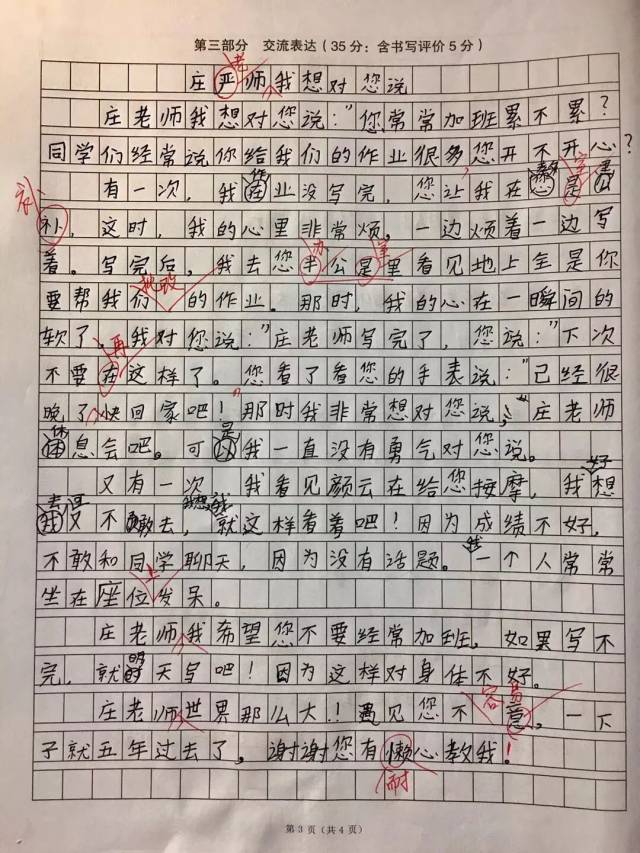 第三部分 交流表达(35分:含书写评价5分)
老
庄严师我想对您说
庄老师我想对您说:"您常常加班累不累?
同学们经常说你给我们的作业很多,您开不开心?
作 教 室
有一次,我在业没写完,您让我在是
补,这时,我的心里非常烦,一边烦着一边写
办 室
着。写完后,我去您半公是里看见地上全是你
批改
要帮我们的作业。那时,我的心在一瞬间的
软了,我对您说:"庄老师写完了,您说:"下次
再
不要在这样了。您看了看您的手表说:"已经很
晚了快回家吧!"那时我非常想对您说,庄老师
休 是
息会吧。可以我一直没有勇气对您说。
好
又有一次 我看见颜云在给您按摩,我想
去可 我想我
我又不敢去,就这样看着吧!因为成绩不好,
不敢和同学聊天,因为没有话题。一个人常常
上
坐在座位发呆。
庄老师我希望您不要经常加班,如果写不
明
完,就天写吧!因为这样对身体不好。
容易
庄老师世界那么大!遇见您不意,一下
子就五年过去了。谢谢您有懒心教我!
耐
第3页(共4页)